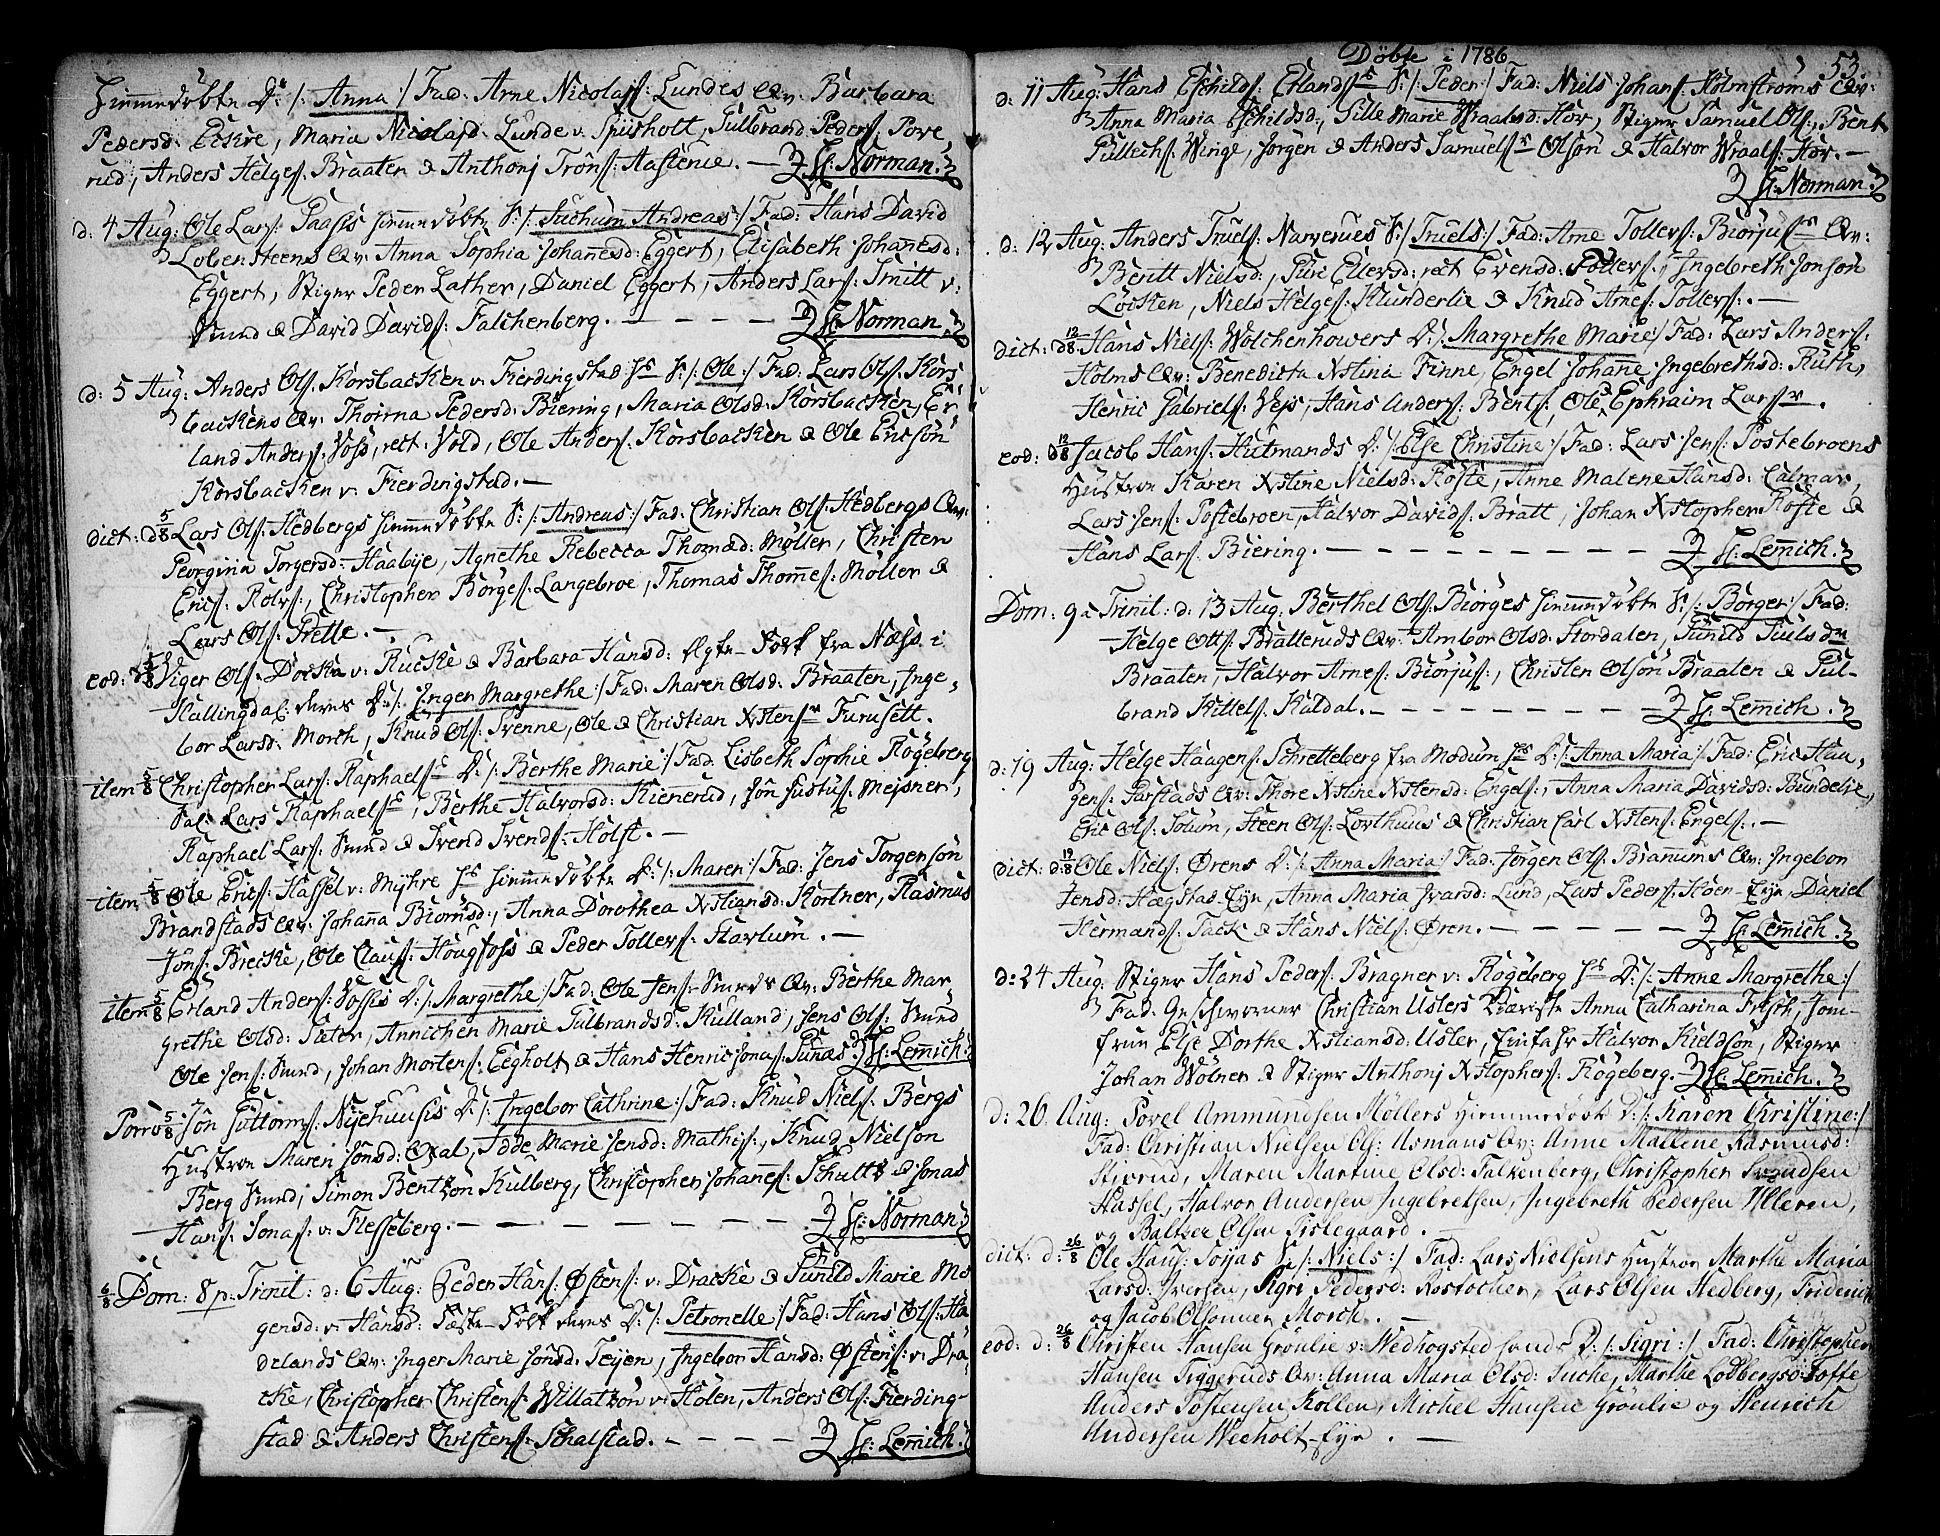 hiemmedöbte D: /: Anna :/ Fad: Arne Nicolaj⁠s: Lundes Qv: Barbara
Pedersd: Eskre, Maria Nicolajsd: Lunde v. Spisholt, Gulbrand Peders: Pove,
rud, Anders Helges: Braaten & Anthonj Trons: Aastenie. — H: Norman.
d: 4 Aug: Ole Lars: Paasis hiemmedöbte S: /: Andreas :/ Fad: Hans David
Lobensteens Qv: Anna Sophia Johannesd: Eggert, Elisabeth Johanesd:
Eggert, Stiger Peder Lather, Daniel Eggert, Anders Lars: Smitt v:
Smed & David Davids: Falchenberg. — — — — H: Norman.
d: 5 Aug: Anders Ols: Korsbacken v. Fierdingstad hs S: /: Ole :/ Fad: Lars Ols: Kors-
backens Qv: Pedersd: Biering, Maria Olsd: Korsbacken, Er,
land Anders: Voss, rect: Vold, Ole Anders: Korsbacken & Ole Ericsön
Korsbacken v: Fierdingstad. —
dict: d 5/8 Lars Ols: Hedbergs hiemmedöbte S: /: Andreas :/ Fad: Christian Ols: Hedbergs Qv:
Georgina Torgersd: Haabÿe, Agnethe Rebecca Thomæd: Møller, Christen
Erics: Rolvs:, Christopher Børges: Langebroe, Thomas Thommes: Møller &
Lars Ols: Prette. —
eod: d 5/8 Viger Ols: Docka v: Rucke & Barbara Hansd: Ægte-Folk fra Næss i
Hallingdal: deres D: /: Inger Margrethe :/ Fad: Maren Olsd: Braaten, Inge,
bor Larsd: Morch, Knud Ols: Svenne, Ole & Christian Xstens: Furusett.
item 5/8 Christopher Lars: Raphaels: D: /: Berthe Marie :/ Fad: Lisbeth Sophie Rögeberg
Sal: Lars Raphaels:, Berthe Halvorsd: Kiennerud, Jön Justus: Mejsner,
Raphael Lars: Smed & Svend Svends: Holst. —
item 5/8 Ole Erics: Hassel v: Mÿhre hs hiemmedöbte D: /: Maren :/ Fad: Jens Torgersön
Brandstads Qv: Johanna Biornsd:, Anna Dorothea Xstiansd: Kortner, Rasmus
Jöns: Brecke, Ole Claus: Hougfoss & Peder Tollevs: Harlum. —
item 5/8 Erland Anders: Vosses D: /: Margrethe :/ Fad: Ole Jens: Smeds Qv: Berthe Mar-
grethe Olsd: Sæter, Annichen Marie Gulbrandsd: Kulland, Jens Ols: Smed
Ole Jens: Smed, Johan Mortens: Eegholt & Hans Henric Jonas: Gunnas. H: Lemich.
Porro 5/8 Jön Guttorms: Nÿehuusis D: /: Ingebor Cathrine :/ Fad: Knud Niels: Bergs
Hustroe Maren Jonsd: Oxal, Todde Marie Jensd: Mathis:, Knud Nielson
Berg Smed, Simon Bentzon Kulberg, Christopher Johannes: Schults & Jonas
Hans: Jonas: v: Flesseberg. — — — — — — H: Norman.
6/8 Dom: 8 p. Trinit: d: 6 Aug: Peder Hans: Østens: v: Dracke & Gunild Marie Mo
gensd: v: Hansd: Fæste-Folk deres D: /: Petronelle :/ Fad: Hans Ols: Ha
delands Qv: Inger Marie Jönsd: Teÿen, Ingebor Hansd: Østens: v: Dra,
cke, Christopher Christens: Willatzon v: Holen, Anders Ols: Fierding-
stad & Anders Christens: Schalstad. — — — — H: Lemich.
Döbte i 1786
53.
d: 11 Aug: Hans Eschilds: Erlands: S: /: Peder :/ Fad: Niels Johans: Holmströms Qv:
Anna Maria Eschildsd:, Sille Marie Wraalsd: Hov, Stiger Samuel Ols:, Bent
Gullichs: Winge, Jörgen & Anders Samuels: Olsön & Halvor Wraals: Hov. —
H: Norman.
d: 12 Aug: Anders Truels: Narverues S: /: Truels :/ Fad: Arne Tollevs: Biorjus: Qv:
Beritt Nielsd:, Guri Ellevsd: rect Evensd: Tollevs:, Ingebreth Jonson
Løcken, Niels Helges: Klunderlie & Knud Arnes: Tollevs:. —
dict: d 12/8 Hans Niels: Wolchenhowers D: /: Margrethe Marie :/ Fad: Lars Anders:
Holms Qv: Benedicta Xstina Finne, Engel Johane Ingebrethsd: Ruth,
Henric Gabriels: Wejs, Hans Anders: Bents:, Ole & Ephraim Lars:.
eod: d 12/8 Jacob Hans: Hutmands D: /: Else Christine :/ Fad: Lars Jens: Postebroens
Hustroe Karen Xstine Nielsd: Röste, Anne Malene Hansd: Calmar,
Lars Jens: Postebroen, Halvor Davids: Bratt, Johan Xstopher Röste &
Hans Lars: Biering. — — — — — — — — H: Lemich.
Dom: 9 a Trinit: d: 13 Aug: Berthel Ols: Biörges hiemmedöbte S: /: Börger :/ Fad:
Helge Otts: Bratteruds Qv: Ambor Olsd: Stordalen, Gunild Juulsd:
Braaten, Halvor Arnes: Biörjus:, Christen Olsön Braaten & Gul-
brand Kittels: Kaldal. — — — — — — — H: Lemich.
d: 19 Aug: Helge Haagens: Schretteberg fra Modum hs D: /: Anna Maria :/ Fad: Eric Haa,
gens: Garstads Qv: Thore Xstine Xstensd: Engels:, Anna Maria Davidsd: Bundelie,
Eric Ols: Solum, Steen Ols: Lovthuus & Christian Carl Xstens: Engels:. —
dict: d: 19/8 Ole Niels: Ørens D: /: Anna Maria :/ Fad: Jörgen Ols: Brannums Qv: Ingebor
Jensd: Hægstad-Eÿe, Anna Maria Ivarsd: Lund, Lars Peders: Hoen-Eÿe, Daniel
Hermands: Tack & Hans Niels: Øren. — — — — H: Lemich.
d: 24 Aug: Stiger Hans Peders: Bragner v: Rögeberg hs D: /: Anne Margrethe :/
Fad: Geschworner Christian Uslers Kiæriste Anna Catharina Frisch, Jom-
frue Else Dorthe Xstiansd: Usler, Halvor Kieldsön, Stiger
Johan Wölner & Stiger Anthonj Xstophers: Rögeberg. H: Lemich.
d: 26. Aug: Povel Ammundsen Møllers hiemmedöbt D: /: Karen Christine :/
Fad: Christian Nielsen Ols: Asmans Qv: Anne Mallene Rasmusd:
Stierud, Maren Martine Olsd: Falkenberg, Christopher Svendsen
Hassel, Halvor Andersen Ingebretsen, Ingebreth Pedersen Ulleren,
og Baltzer Olsen Fislegaard.
dict: d: 26/8 Ole Hans: Toÿas S: /: Niels :/ Fad: Lars Nielsens Hustroe Marthe Maria
Larsd: Iversen, Sigri Pedersd: Rostocher, Lars Olsen Hedberg, Friderich
og Jacob Olsønner Morch. —
eod: d: 26/8 Christen Hansen Grönlie v: Wedhogsted hands D: /: Sigri :/ Fad: Christopher
Hansen Tiggeruds Qv: Anna Maria Olsd: Suche, Marthe Lodbergsd: Toffte
Anders Tostensen Kollen, Michel Hansen Grönlie og Henrich
Andersen Weeholt-Eÿe. —